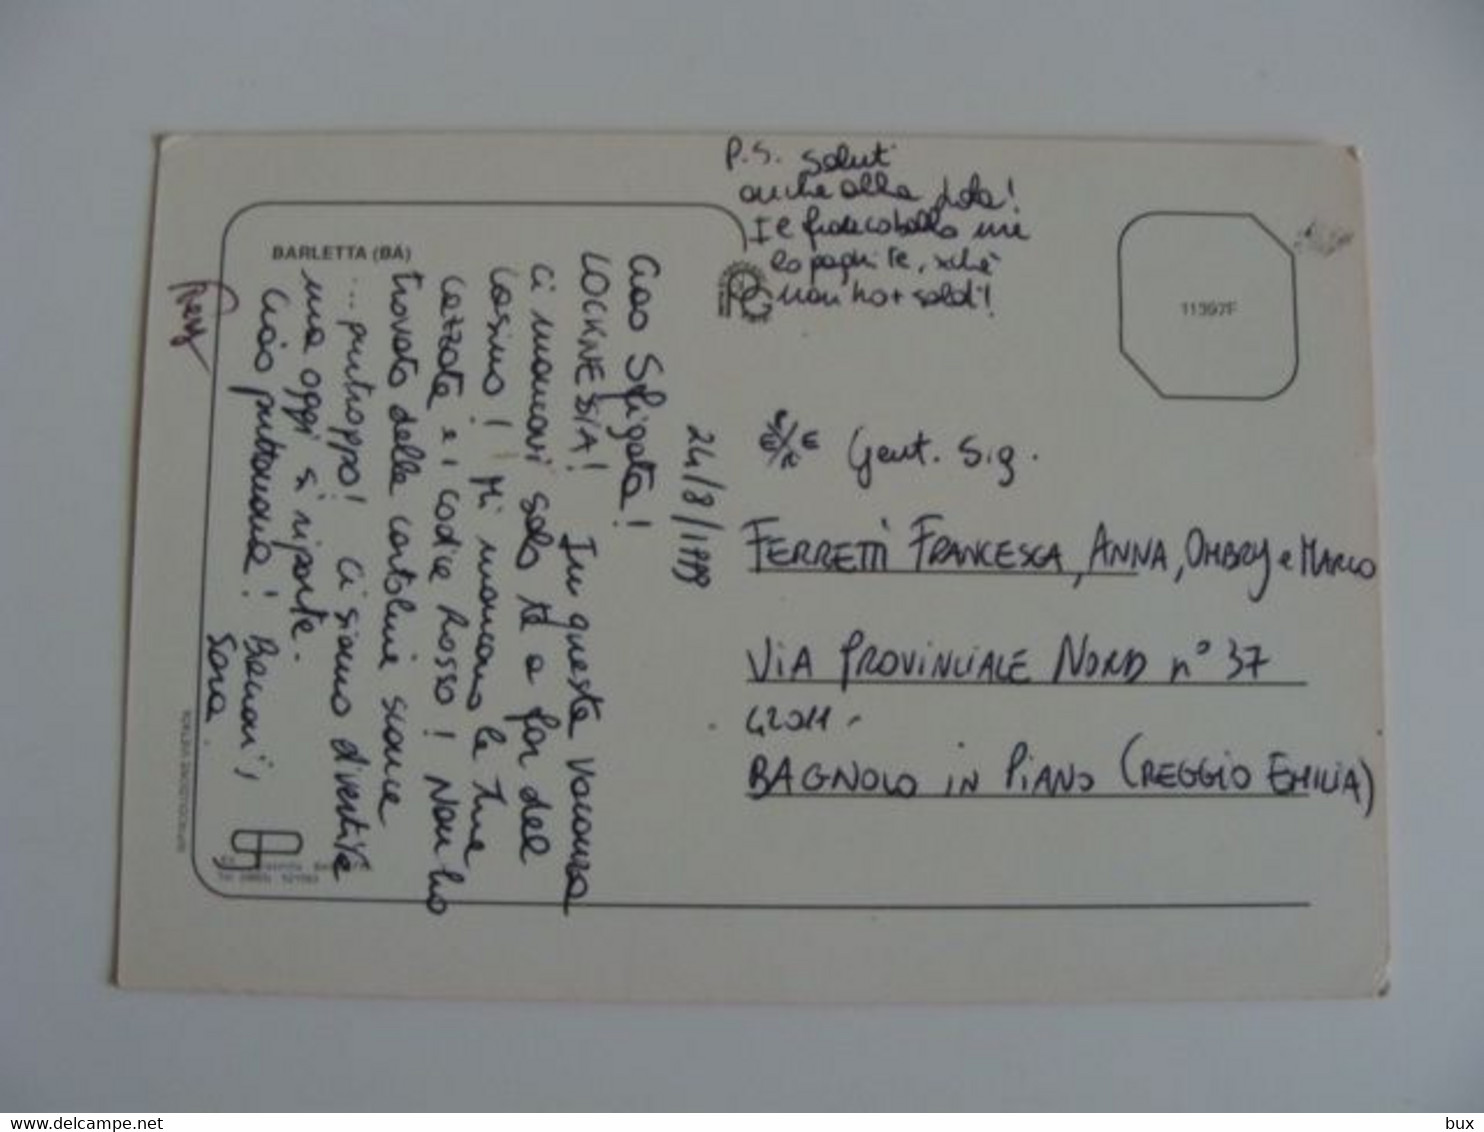 BARLETTA (BA)
24/8/1999
Ciao Sfigata!
LOCKNESIA! In questa vacanza
ci mancavi solo te a far del
casino! Mi mancano le tue
cazzate e i codice Rosso! Non ho
trovato delle cartoline sceme
... purtroppo! Ci siamo divertite
ma oggi si riparte.
Ciao puttanona! Bacioni,
Sara.
P.S. Saluti
anche alla
Il francobollo me
lo paghi te, xchè
non ho + soldi!
11397F
Gent. Sig.
FERRETTI FRANCESCA, ANNA, OMBRY e MARCO
VIA PROVINCIALE NORD n° 37
42011 -
BAGNOLO IN PIANO (REGGIO EMILIA)
bux
www.delcampe.net